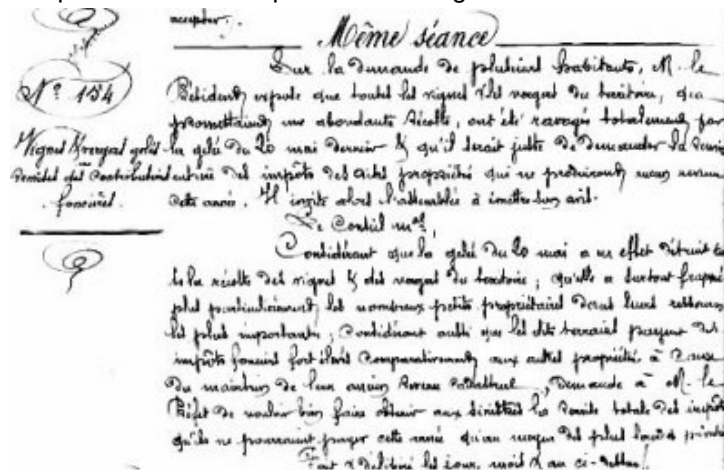 accepter.
Même séance
Sur la demande de plusieurs habitants, M. le
Nº 154
Président expose que toutes les vignes & les verges du territoire, qui
promettaient une abondante récolte, ont été ravagés totalement par
Vignes & verges gelés
la gelée du 20 mai dernier & qu'il serait juste de demander la remise
Remises des Contributions
entière des impôts des dites propriétés qui ne produiront aucun revenu
foncières.
cette année. Il invite alors l'assemblée à émettre son avis.
Le Conseil mal,
Considérant que la gelée du 20 mai a en effet détruit
la récolte des vignes & des verges du territoire ; qu'elle a surtout frappé
plus particulièrement les nombreux petits propriétaires dont leurs ressources
les plus importantes ; Considérant aussi que les dits terrains payent des
impôts fonciers fort élevés comparativement aux autres propriétés à cause
du maintien de leur ancien revenu cadastral, demande à M. le
Préfet de vouloir bien faire obtenir aux sinistrés la remise totale des impôts
qu'ils ne pourraient payer cette année qu'au moyen des plus lourds
Fait & délibéré les jour, mois & an ci-dessus